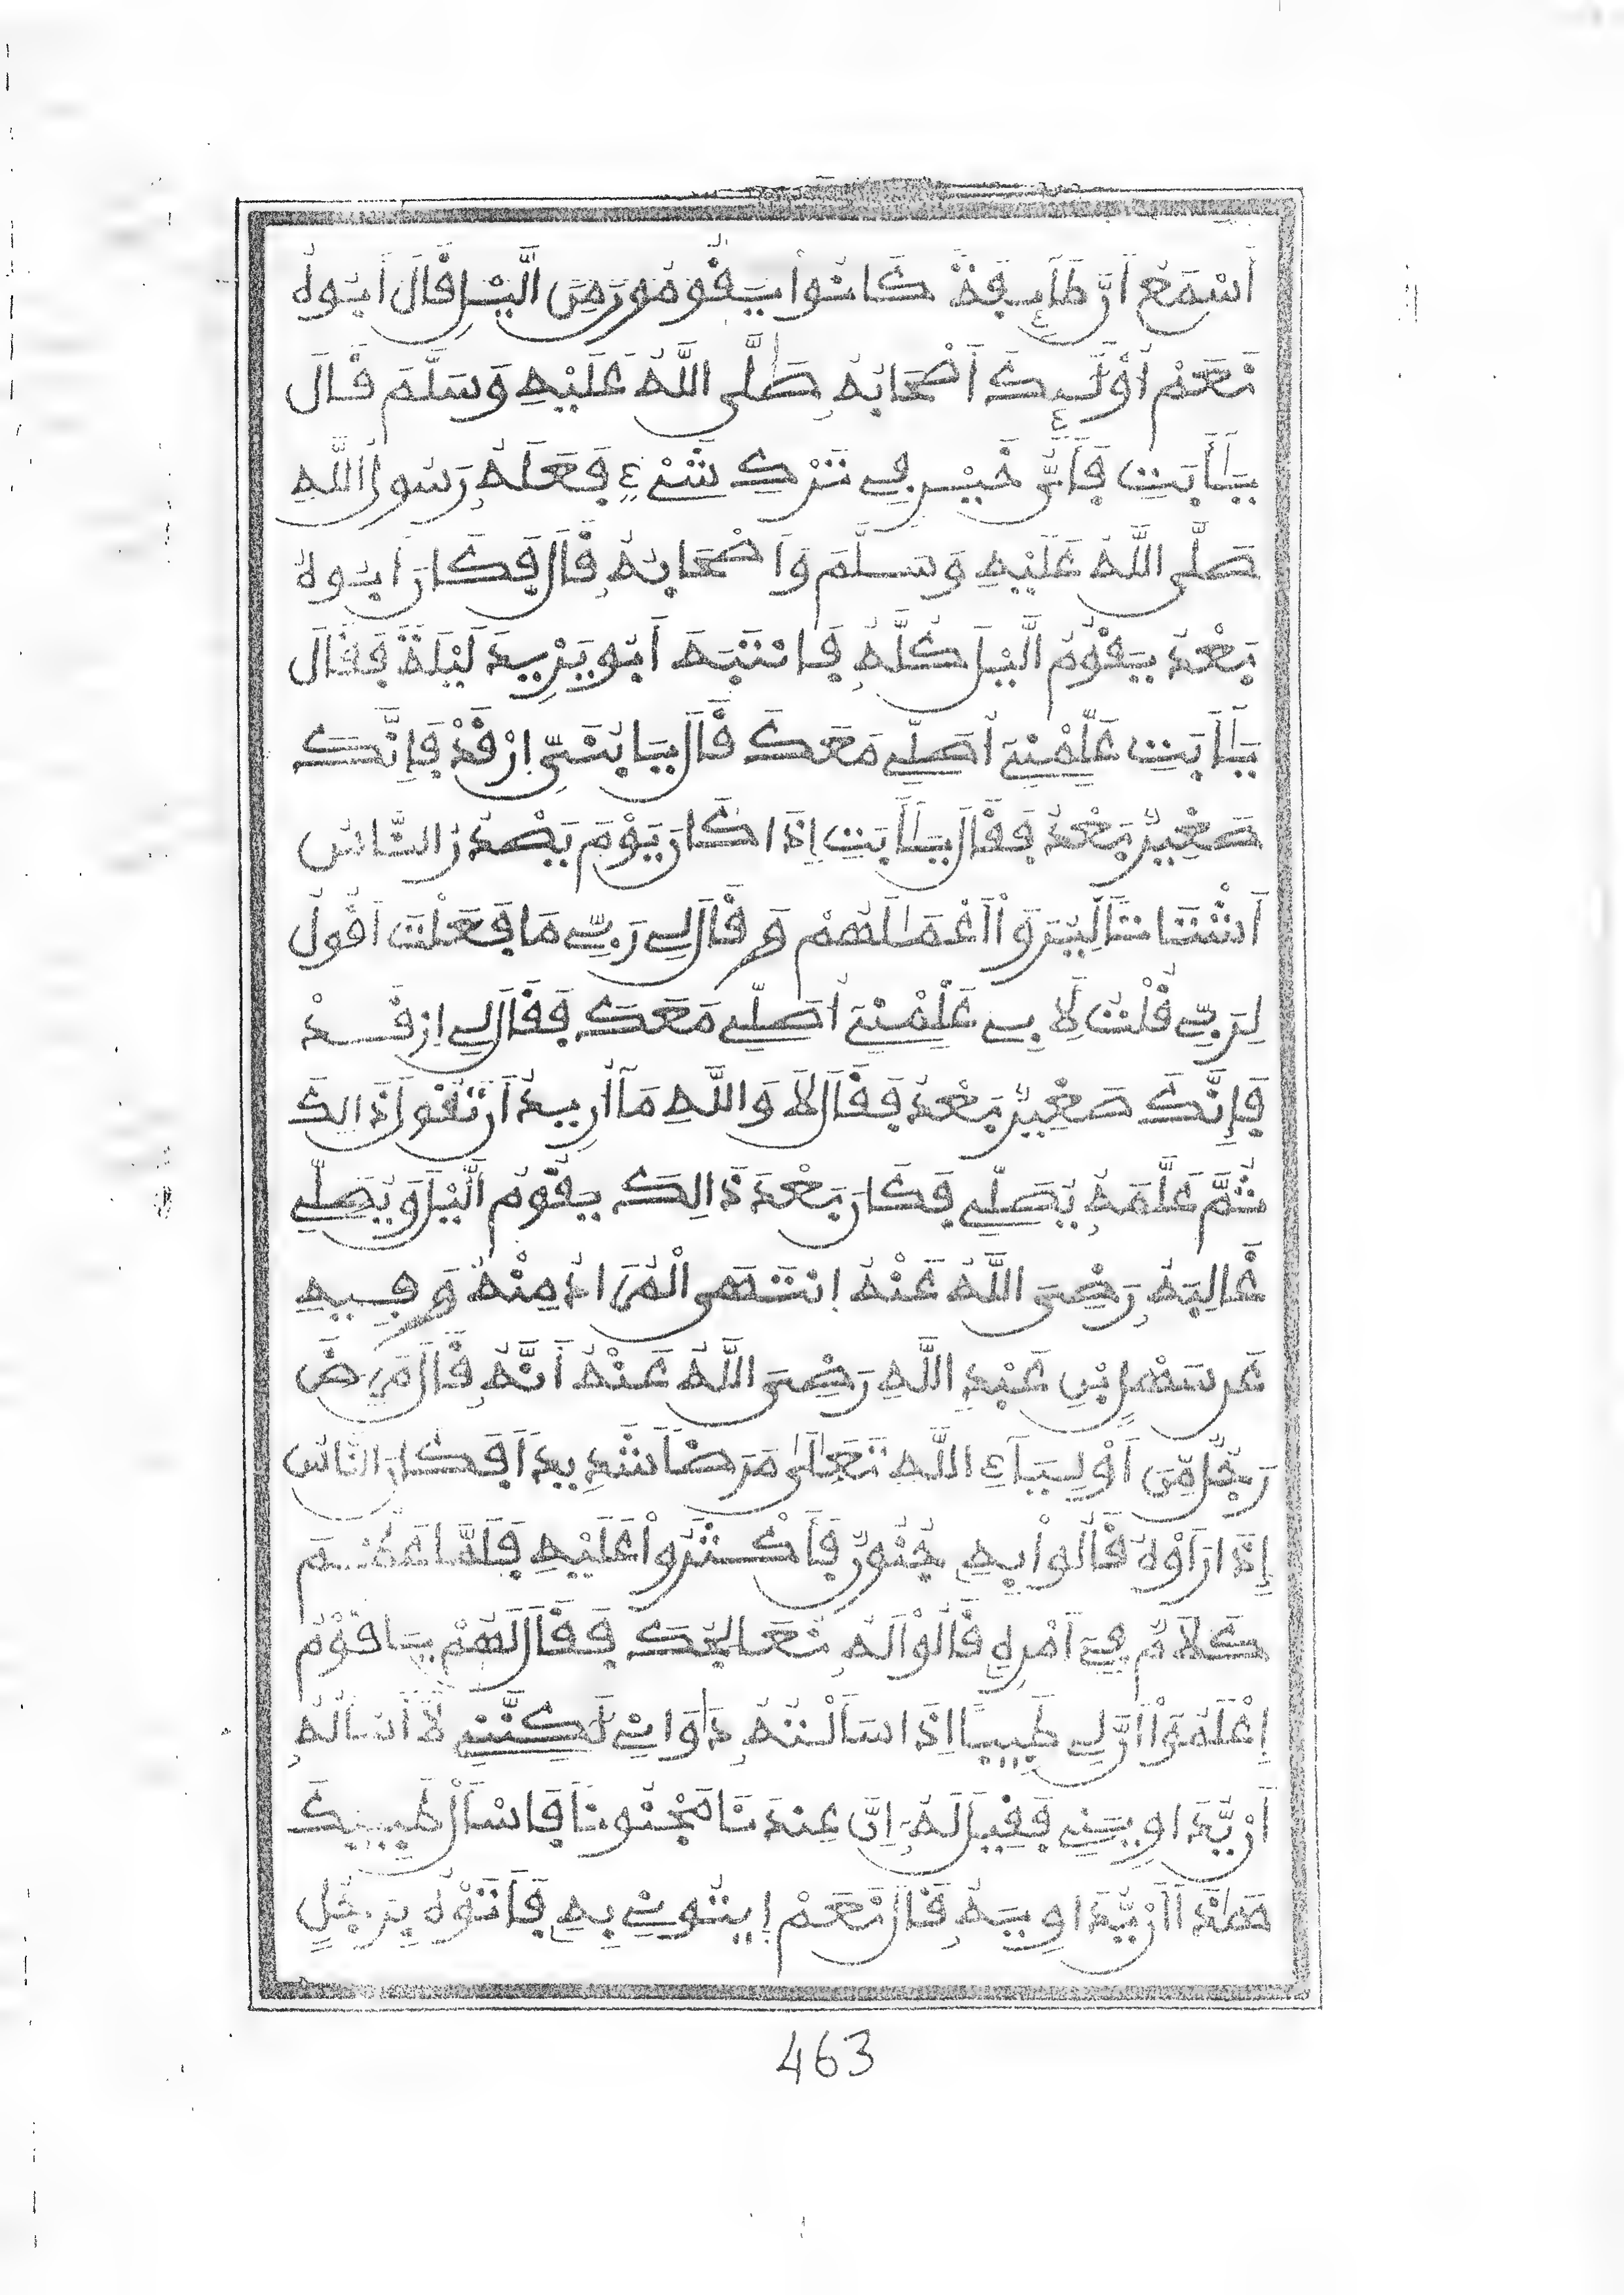 أَسْمَعُ أَنَّ طَآئِفَةً كَانُواْ يَقُومُونَ مِنَ الَّيْلِ قَالَ أَبُوهُ
نَعَمْ أُوْلَٰٓئِكَ أَصْحَابُهُ صَلَّى اللَّهُ عَلَيْهِ وَسَلَّمَ قَالَ
يَٰٓأَبَتِ فَأَيُّ خَيْرٍ فِي تَرْكِ شَيْءٍ فَعَلَهُ رَسُولُ اللَّهِ
صَلَّى اللَّهُ عَلَيْهِ وَسَلَّمَ وَأَصْحَابُهُ قَالَ فَكَانَ أَبُوهُ
بَعْدُ يَقُومُ الَّيْلَ كُلَّهُ فَانْتَبَهَ أَبُو يَزِيدَ لَيْلَةً فَقَالَ
يَٰٓأَبَتِ عَلِّمْنِي أُصَلِّي مَعَكَ قَالَ يَا بُنَيَّ ارْقُدْ فَإِنَّكَ
صَغِيرٌ بَعْدُ فَقَالَ يَٰٓأَبَتِ إِذَا كَانَ يَوْمَ يَصْدُرُ النَّاسُ
أَشْتَاتاً لِّيُرَوْاْ أَعْمَٰلَهُمْ وَقَالَ لِي رَبِّي مَا فَعَلْتَ أَقُولُ
لِرَبِّي قُلْتُ لِأَبِي عَلِّمْنِي أُصَلِّي مَعَكَ فَقَالَ لِي ارْقُدْ
فَإِنَّكَ صَغِيرٌ بَعْدُ فَقَالَ لاَ وَاللَّهِ مَآ أُرِيدُ أَنْ تَقُولَ ذَالِكَ
ثُمَّ عَلَّمَهُ يُصَلِّي فَكَانَ بَعْدَ ذَالِكَ يَقُومُ الَّيْلَ وَيُصَلِّي
غَالِبَهُ رَضِيَ اللَّهُ عَنْهُ انْتَهَى الْمُرَادُ مِنْهُ وَفِيهِ
عَن سَهْلِ بْنِ عَبْدِ اللَّهِ رَضِيَ اللَّهُ عَنْهُ أَنَّهُ قَالَ مَرِضَ
رَجُلٌ مِّنَ أَوْلِيَآءِ اللَّهِ تَعَٰلَى مَرَضاً شَدِيداً فَكَانَ النَّاسُ
إِذَا رَأَوْهُ قَالُواْ بِهِ جُنُونٌ فَأَكْثَرُواْ عَلَيْهِ فَلَمَّا عَظُمَ
كَلاَمُهُمْ فِي أَمْرِهِ قَالُواْ لَهُ نُعَالِجُكَ فَقَالَ لَهُمْ يَا قَوْمُ
اِعْلَمُواْ أَنَّ لِي طَبِيباً إِذَا سَأَلْتُهُ دَاوَانِي لَٰكِنَّنِي لَآ أَسْأَلُهُ
أَنْ يُّدَاوِيَنِي فَقِيلَ لَهُ إِنَّ عِندَنَا مَجْنُوناً فَاسْأَلْ طَبِيبَكَ
هَٰذَا أَنْ يُّدَاوِيَهُ قَالَ نَعَمْ اِيتُونِي بِهِ فَأَتَوْهُ بِرَجُلٍ
463